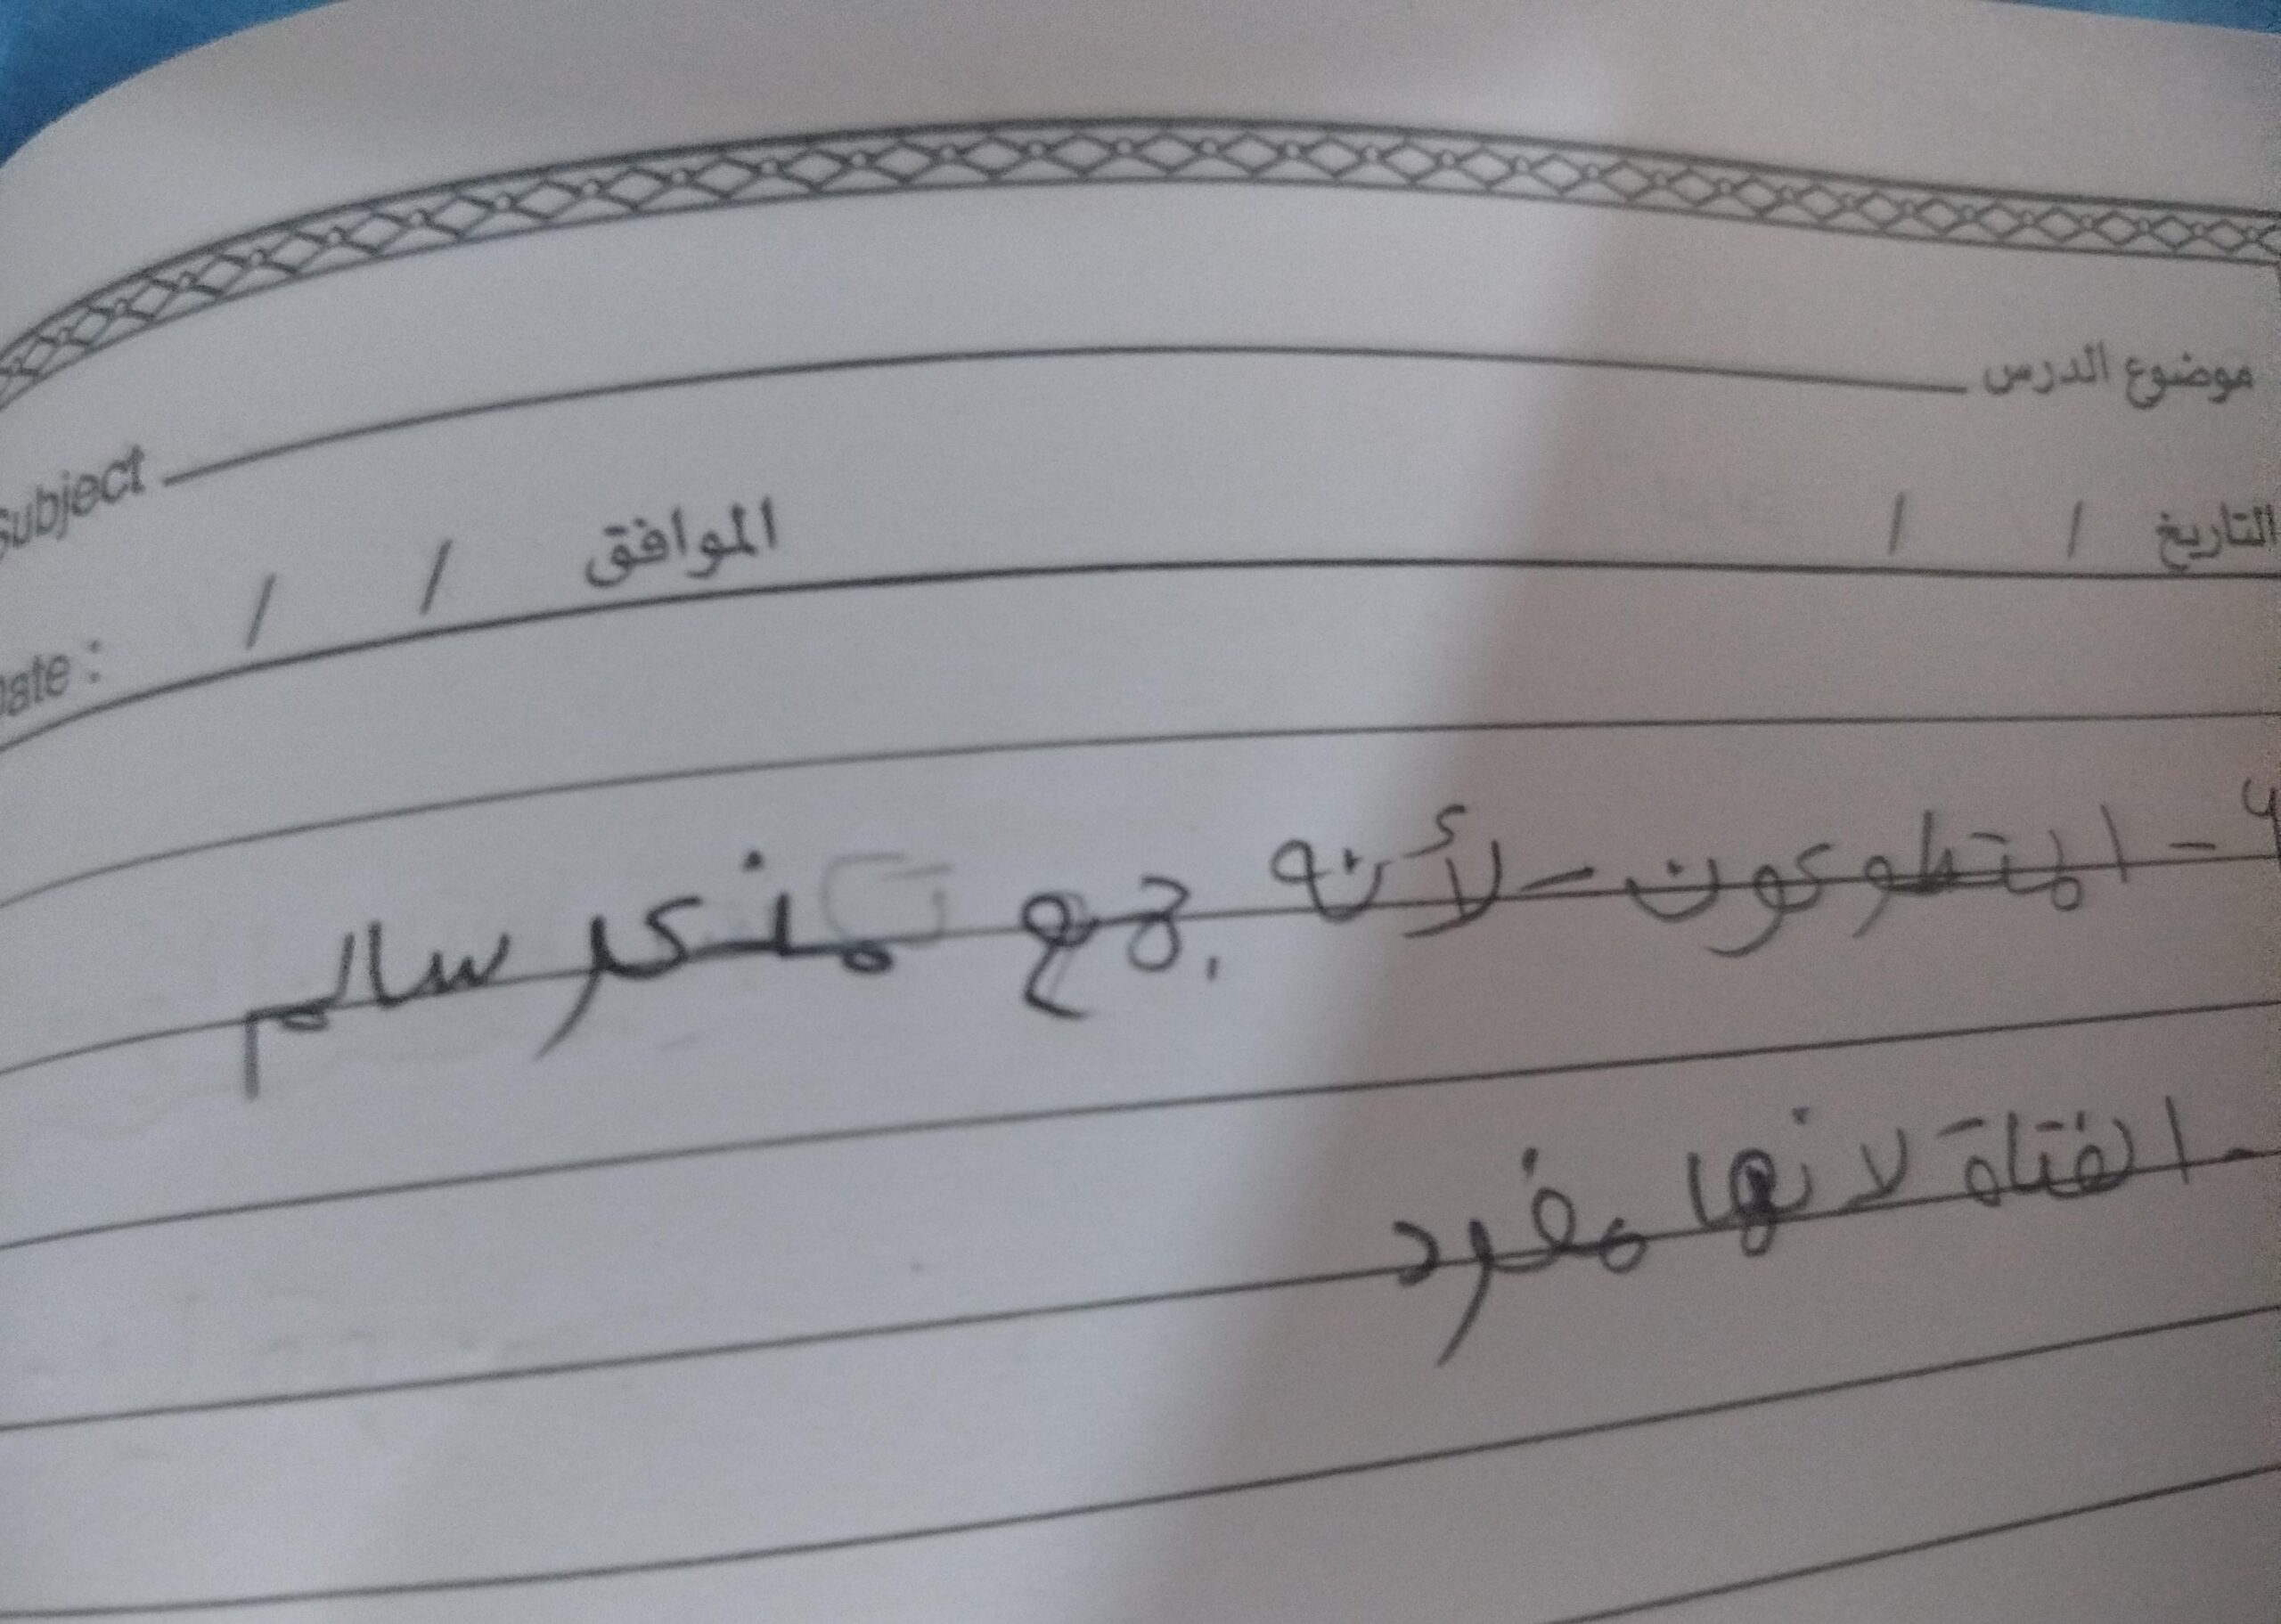 موضوع الدرس Subject
التاريخ / / الموافق / / Date :
- المتطوعون - لأنه جمع مذكر سالم
- الفتاة لانها مفرد